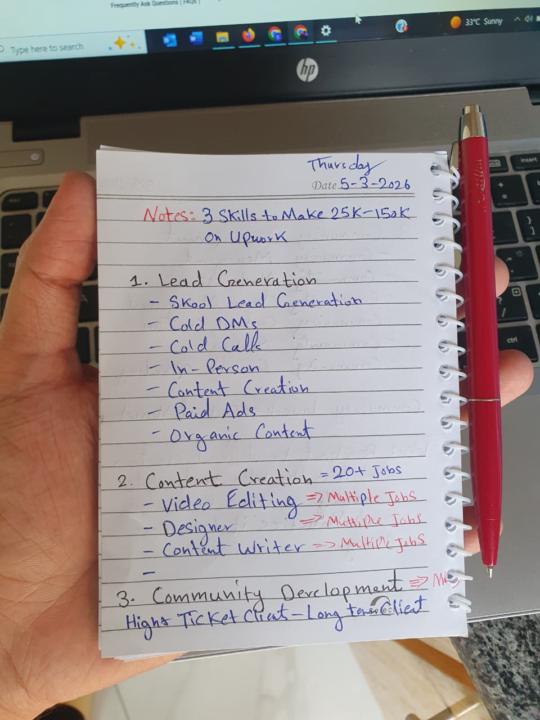 Frequently Ask Questions | FAQs |
Type here to search
33°C Sunny
hp
Thursday
Date 5-3-2026
Notes: 3 Skills to Make 25K-150K
on Upwork
1. Lead Generation
- Skool Lead Generation
- Cold DMs
- Cold Calls
- In-Person
- Content Creation
- Paid Ads
- Organic Content
2. Content Creation = 20+ Jobs
- Video Editing => Multiple Jobs
- Designer => Multiple Jobs
- Content Writer => Multiple Jobs
-
3. Community Development =>
High Ticket Client - Long term Client
insert
ctrl